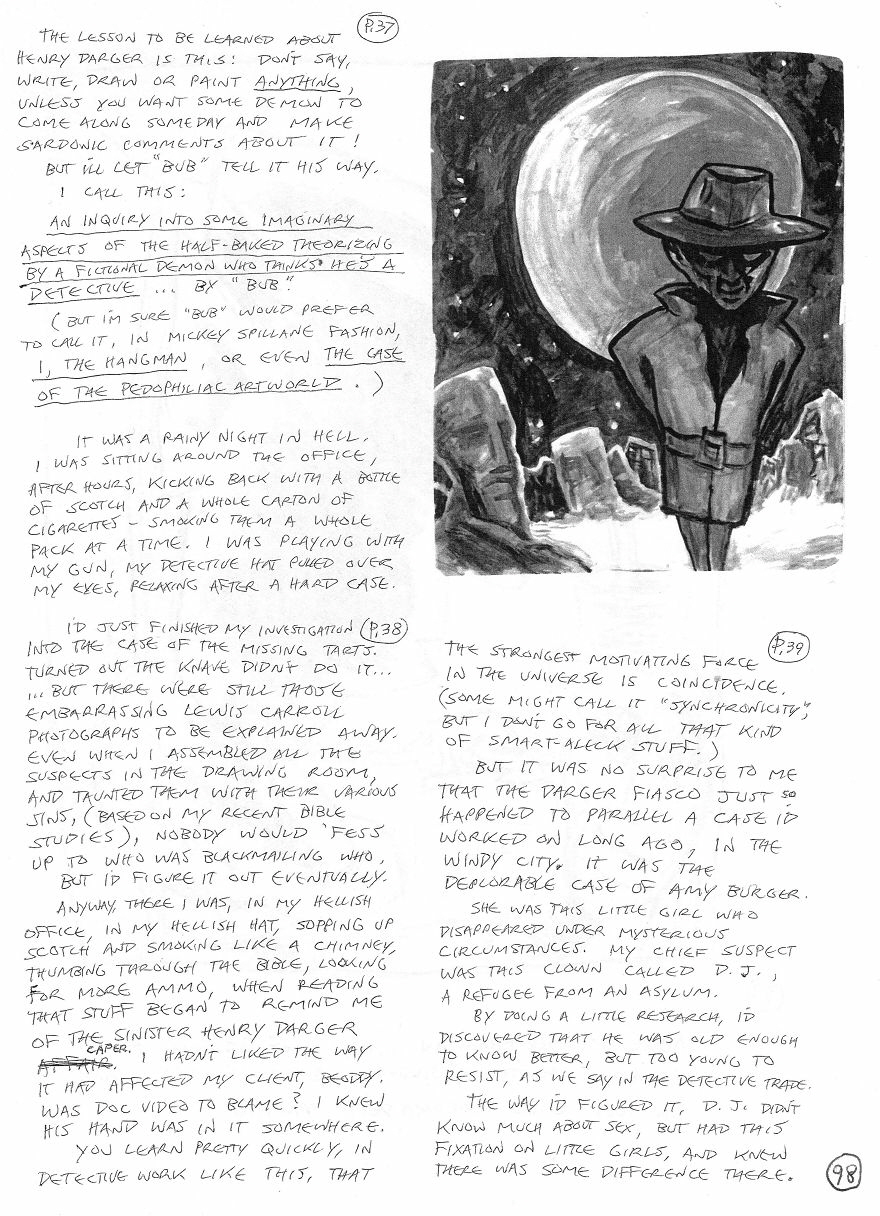 P.37
THE LESSON TO BE LEARNED ABOUT
HENRY DARGER IS THIS: DON'T SAY,
WRITE, DRAW OR PAINT ANYTHING,
UNLESS YOU WANT SOME DEMON TO
COME ALONG SOMEDAY AND MAKE
SARDONIC COMMENTS ABOUT IT!
BUT I'LL LET "BUB" TELL IT HIS WAY.
I CALL THIS:
AN INQUIRY INTO SOME IMAGINARY
ASPECTS OF THE HALF-BAKED THEORIZING
BY A FICTIONAL DEMON WHO THINKS HE'S A
DETECTIVE ... BY "BUB."
(BUT I'M SURE "BUB" WOULD PREFER
TO CALL IT, IN MICKEY SPILLANE FASHION,
I, THE HANGMAN, OR EVEN THE CASE
OF THE PEDOPHILIAC ARTWORLD.)
IT WAS A RAINY NIGHT IN HELL.
I WAS SITTING AROUND THE OFFICE,
AFTER HOURS, KICKING BACK WITH A BOTTLE
OF SCOTCH AND A WHOLE CARTON OF
CIGARETTES - SMOKING THEM A WHOLE
PACK AT A TIME. I WAS PLAYING WITH
MY GUN, MY DETECTIVE HAT PULLED OVER
MY EYES, RELAXING AFTER A HARD CASE.
I'D JUST FINISHED MY INVESTIGATION P.38
INTO THE CASE OF THE MISSING TARTS.
TURNED OUT THE KNAVE DIDN'T DO IT...
...BUT THERE WERE STILL THOSE
EMBARRASSING LEWIS CARROLL
PHOTOGRAPHS TO BE EXPLAINED AWAY.
EVEN WHEN I ASSEMBLED ALL THE
SUSPECTS IN THE DRAWING ROOM,
AND TAUNTED THEM WITH THEIR VARIOUS
SINS, (BASED ON MY RECENT BIBLE
STUDIES), NOBODY WOULD 'FESS
UP TO WHO WAS BLACKMAILING WHO.
BUT I'D FIGURE IT OUT EVENTUALLY.
ANYWAY, THERE I WAS, IN MY HELLISH
OFFICE, IN MY HELLISH HAT, SOPPING UP
SCOTCH AND SMOKING LIKE A CHIMNEY,
THUMBING THROUGH THE BIBLE, LOOKING
FOR MORE AMMO, WHEN READING
THAT STUFF BEGAN TO REMIND ME
OF THE SINISTER HENRY DARGER
AFFAIR. CAPER. I HADN'T LIKED THE WAY
IT HAD AFFECTED MY CLIENT, BEODDY.
WAS DOC VIDEO TO BLAME? I KNEW
HIS HAND WAS IN IT SOMEWHERE.
YOU LEARN PRETTY QUICKLY, IN
DETECTIVE WORK LIKE THIS, THAT
P.39
THE STRONGEST MOTIVATING FORCE
IN THE UNIVERSE IS COINCIDENCE.
(SOME MIGHT CALL IT "SYNCHRONICITY",
BUT I DON'T GO FOR ALL THAT KIND
OF SMART-ALECK STUFF.)
BUT IT WAS NO SURPRISE TO ME
THAT THE DARGER FIASCO JUST SO
HAPPENED TO PARALLEL A CASE I'D
WORKED ON LONG AGO, IN THE
WINDY CITY. IT WAS THE
DEPLORABLE CASE OF AMY BURGER.
SHE WAS THIS LITTLE GIRL WHO
DISAPPEARED UNDER MYSTERIOUS
CIRCUMSTANCES. MY CHIEF SUSPECT
WAS THIS CLOWN CALLED D.J.,
A REFUGEE FROM AN ASYLUM.
BY DOING A LITTLE RESEARCH, I'D
DISCOVERED THAT HE WAS OLD ENOUGH
TO KNOW BETTER, BUT TOO YOUNG TO
RESIST, AS WE SAY IN THE DETECTIVE TRADE.
THE WAY I'D FIGURED IT, D.J. DIDN'T
KNOW MUCH ABOUT SEX, BUT HAD THIS
FIXATION ON LITTLE GIRLS, AND KNEW
THERE WAS SOME DIFFERENCE THERE.
98